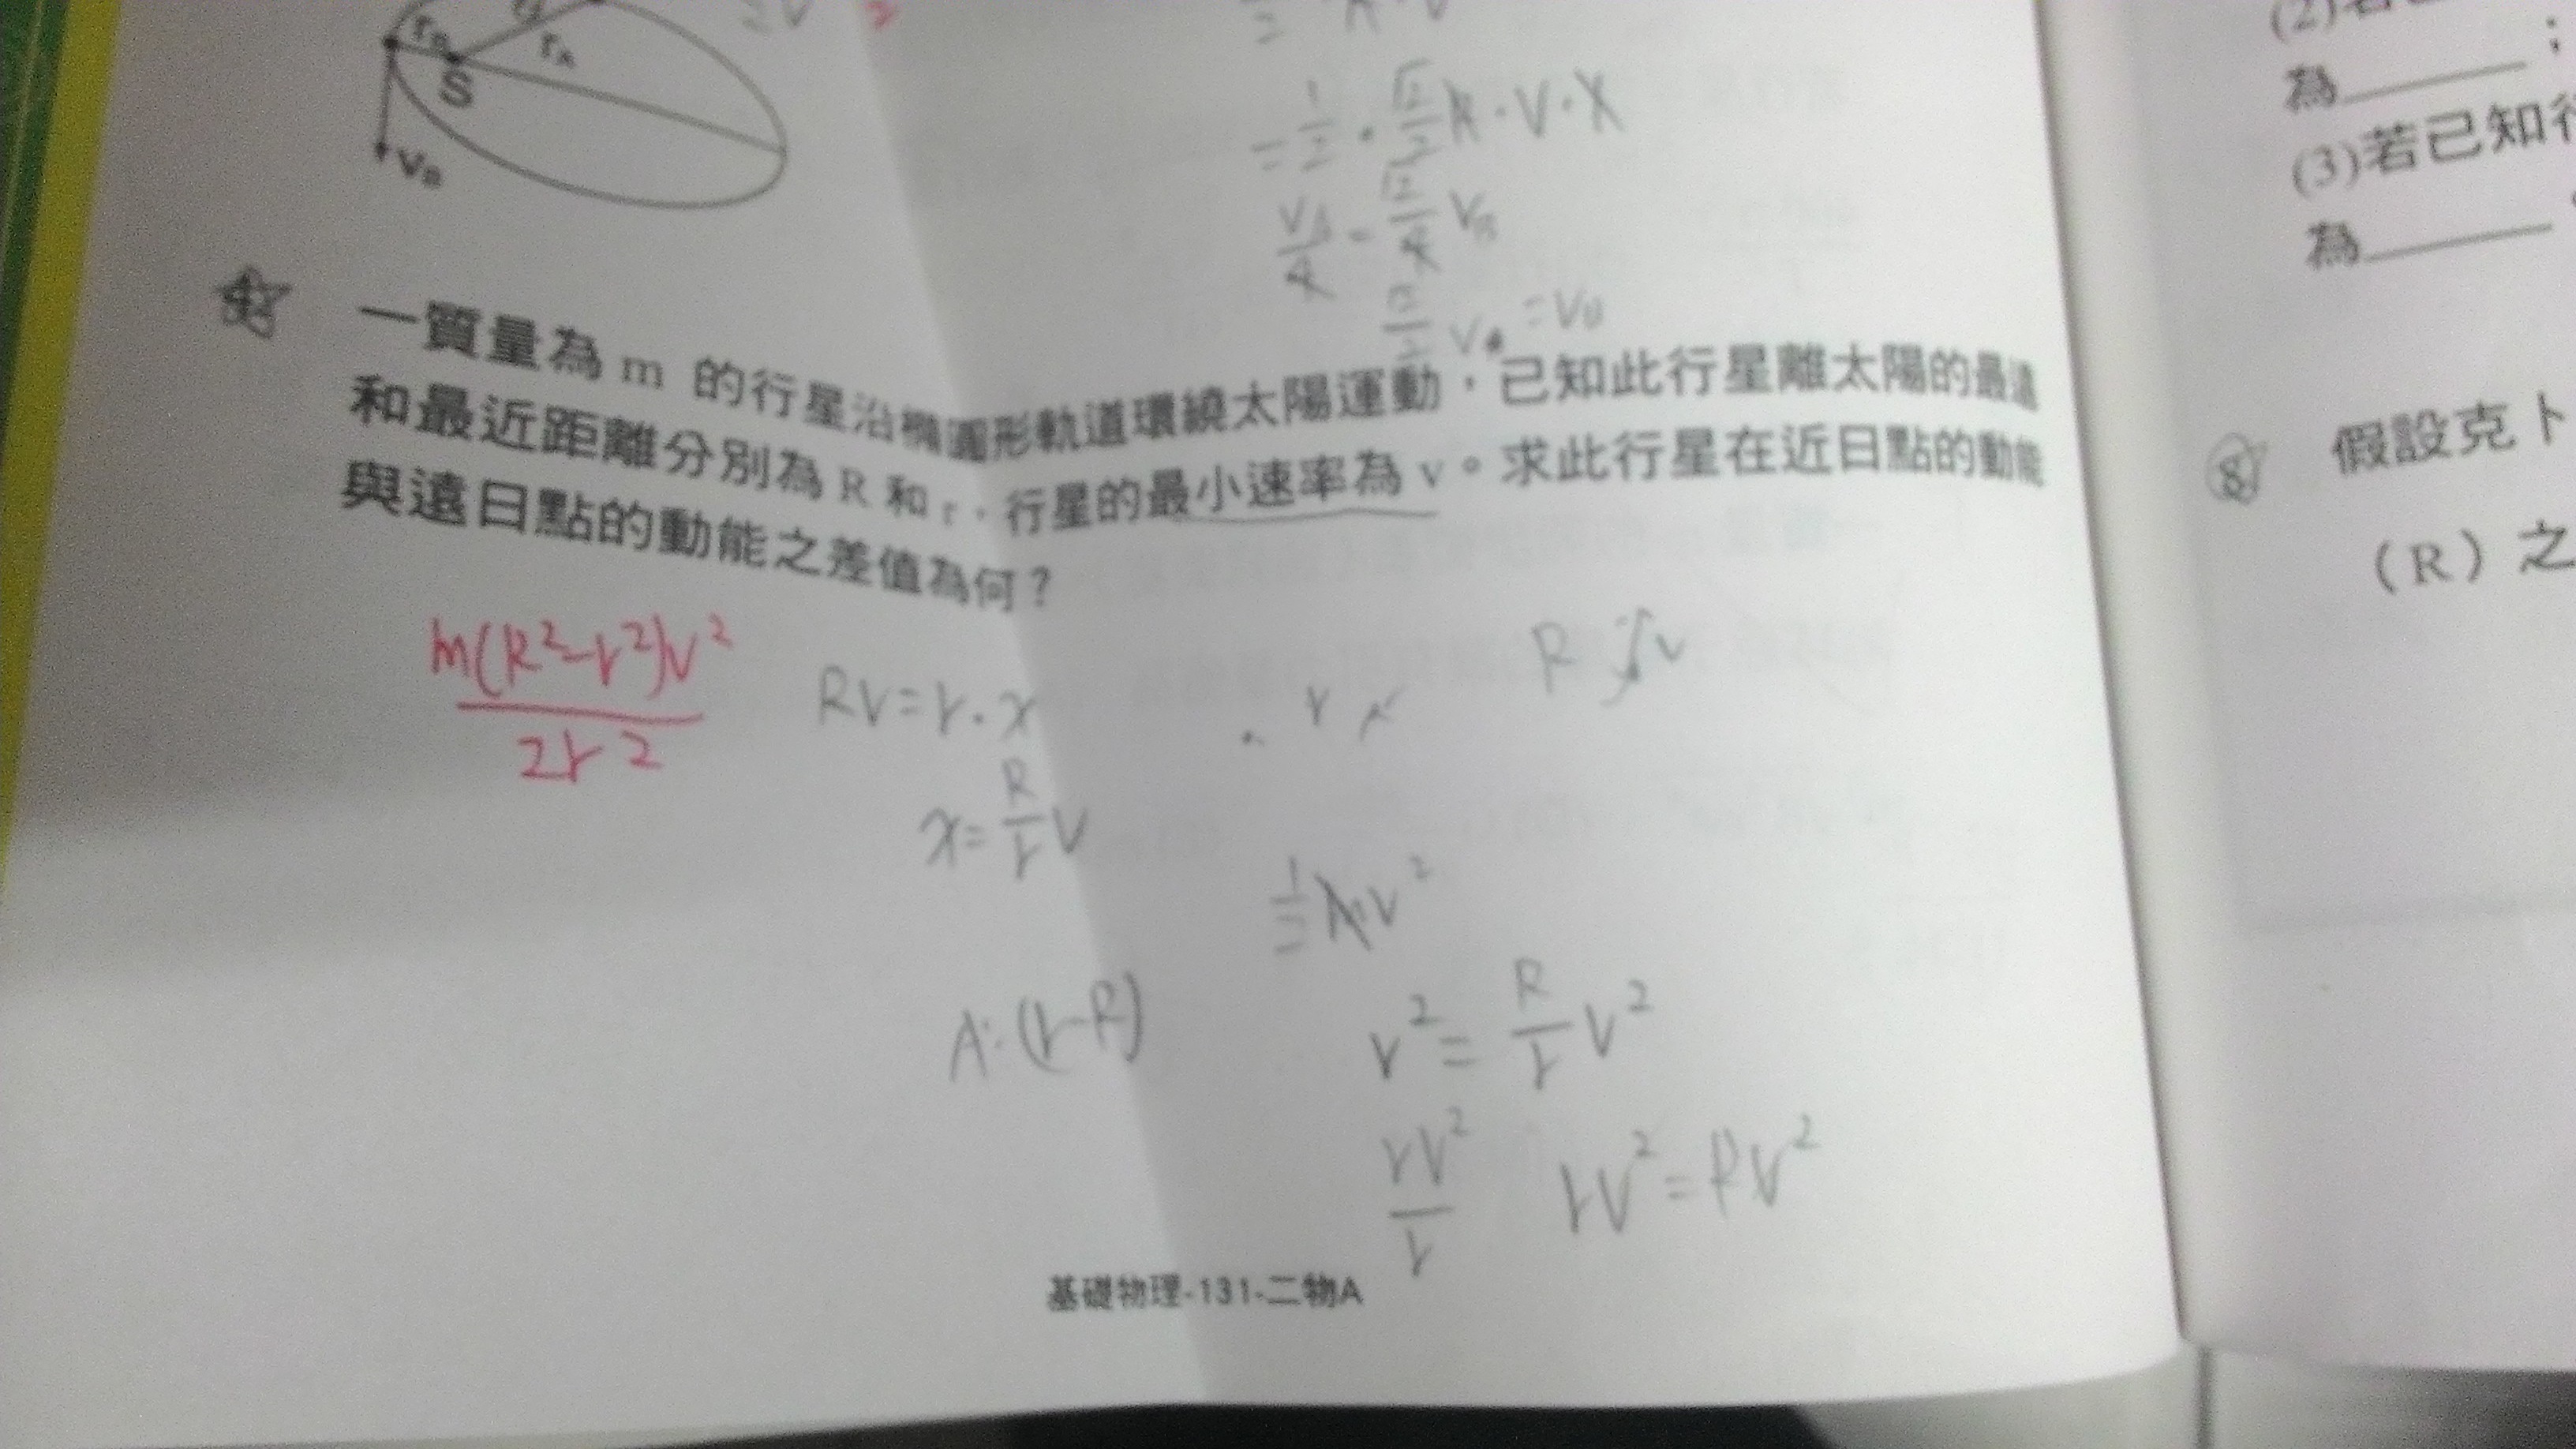 r_B
r_A
S
V_B
2
= 1/2 · √2/2 R · V · X
V_A/4 = √2/4 V_B
= V_B
一質量為 m 的行星沿橢圓形軌道環繞太陽運動，已知此行星離太陽的最遠
和最近距離分別為 R 和 r，行星的最小速率為 v。求此行星在近日點的動能
與遠日點的動能之差值為何？
m(R²-r²)v²/2r²
Rv=r·x
x=R/r v
A:(r-R)
v²=R/r v²
rv²/r
rv²=Rv²
基礎物理-131-二物A
為______；
(3)若已知
為______。
8
假設克卜
（R）之